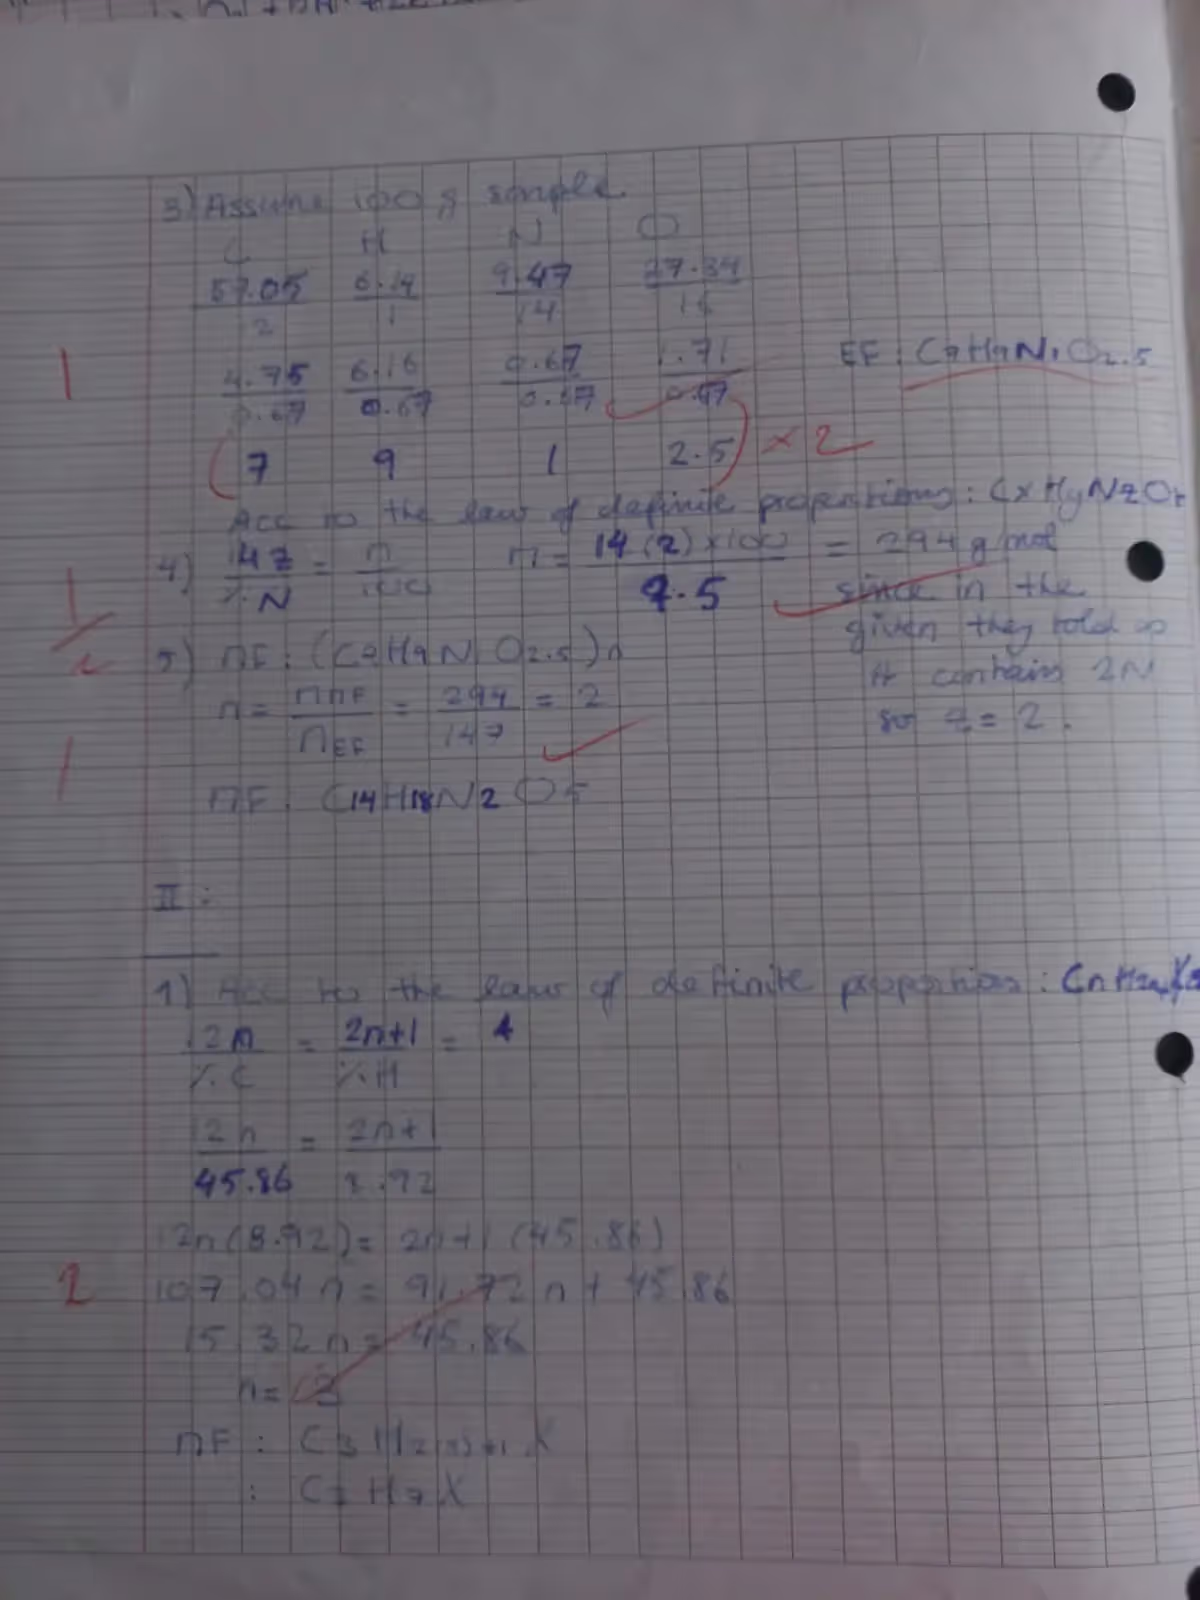 3) Assume 100 g sample
C H N O
57.05 6.14 9.47 27.34
2 1 14 16
1 4.75 6.16 0.67 1.71 EF: C7H9N1O2.5
0.67 0.67 0.67 0.67
(7 9 1 2.5) × 2
Acc to the law of definite proportions: CxHyNzOt
4) 14z/%N = M/100 M = 14(2)×100/9.5 = 294 g/mol
1/2 since in the
given they told us
it contains 2N
so z = 2.
5) MF: (C7H9N1O2.5)n
n = MMF/MEF = 294/147 = 2
1
MF: C14H18N2O5
II:
1) Acc to the law of definite proportions: CnH2n+1X
12n/%C = 2n+1/%H =
12n/45.86 = 2n+1/8.92
12n(8.92) = 2n+1(45.86)
2 107.04n = 91.72n + 45.86
15.32n = 45.86
n = 3
MF: C3H2(3)+1X
: C3H7X